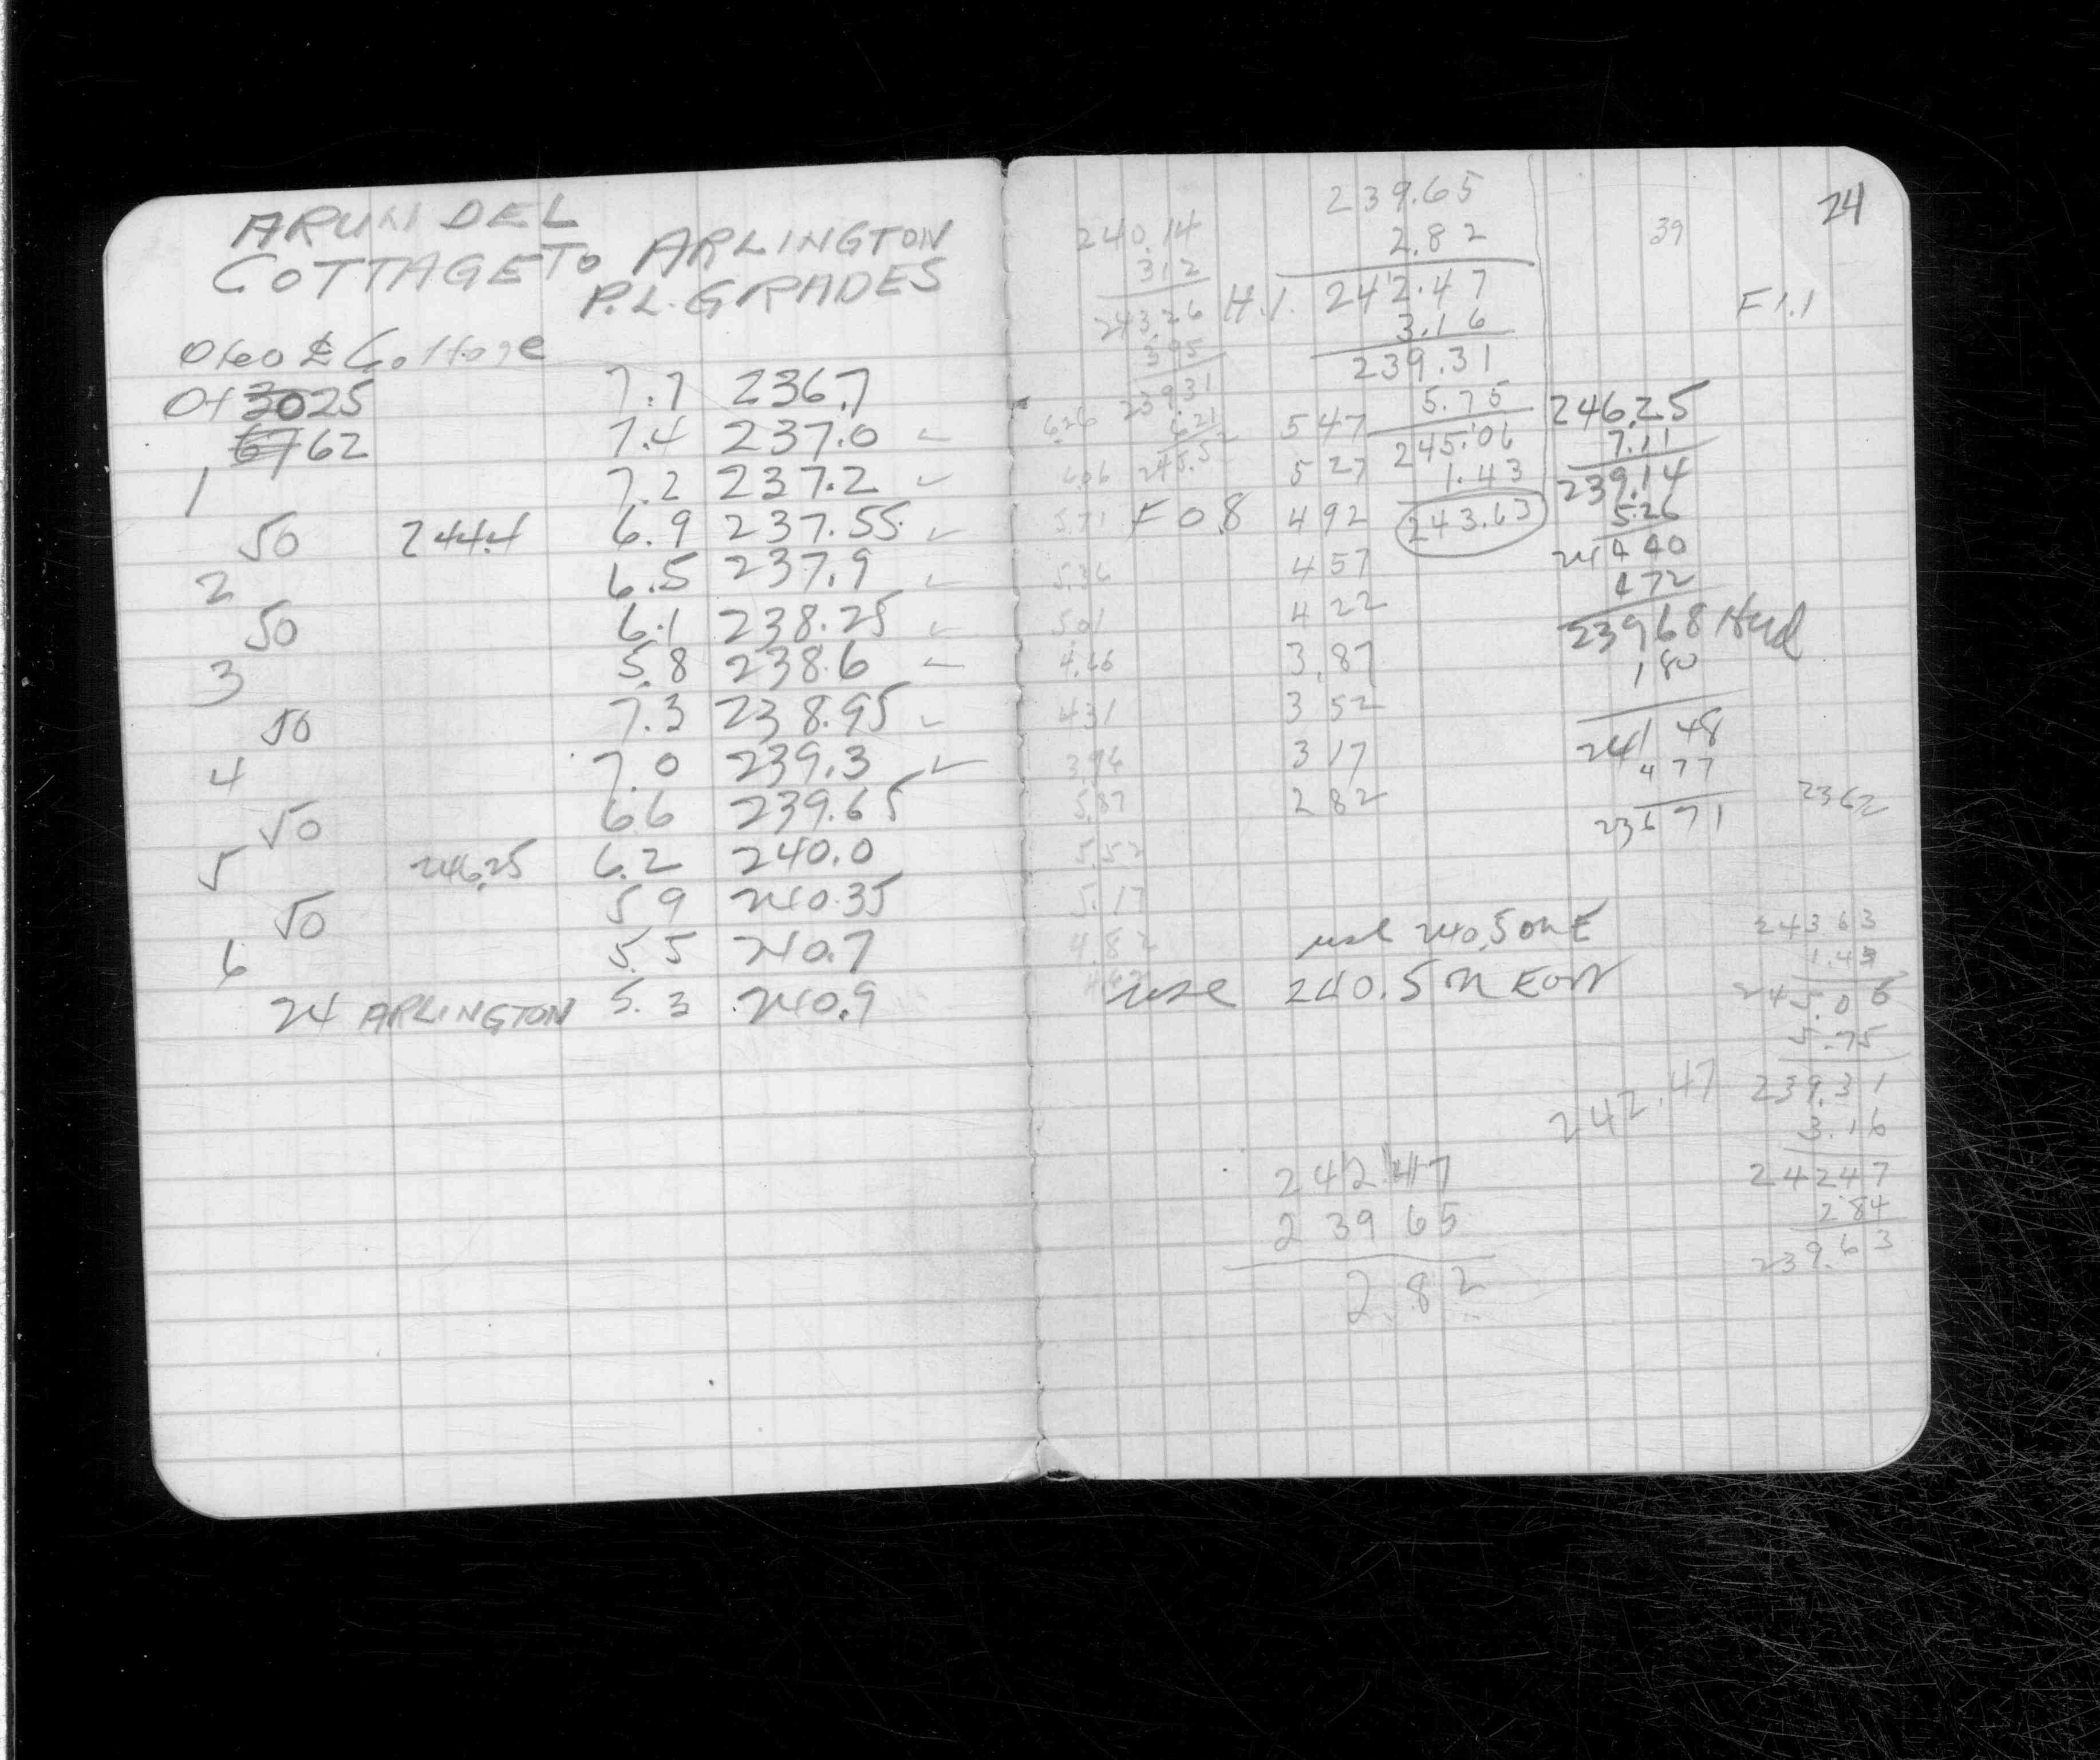 ARUNDEL
COTTAGE TO ARLINGTON
P.L. GRADES
0+00 ⅊ Cottage
0+ 30 25 7.7 236.7
67 62 7.4 237.0 ✓
1 7.2 237.2 ✓
50 244.4 6.9 237.55 ✓
2 6.5 237.9 ✓
50 6.1 238.25 ✓
3 5.8 238.6 ✓
50 7.3 238.95 ✓
4 7.0 239.3 ✓
50 6.6 239.65
5 246.25 6.2 240.0
50 5.9 240.35
6 5.5 240.7
24 ARLINGTON 5.3 240.9
24
39
F1.1
240.14
312
243.26
395
239.31
6.21
245.52
239.65
2.82
H.I. 242.47
3.16
239.31
5.75
245.06
1.43
243.63
626
6.06
5.71
5.36
5.01
4.66
431
3.96
5.87
5.52
5.17
4.82
F 0.8
547
527
492
457
422
3.87
352
317
282
246.25
7.11
239.14
5.26
24440
472
23968 Hud
180
24148
477
23671
2362
use 240.5 on E
use 240.5 on East
24363
1.43
245.06
5.75
239.31
3.16
24247
284
239.63
242.47
242.47
23965
2.82